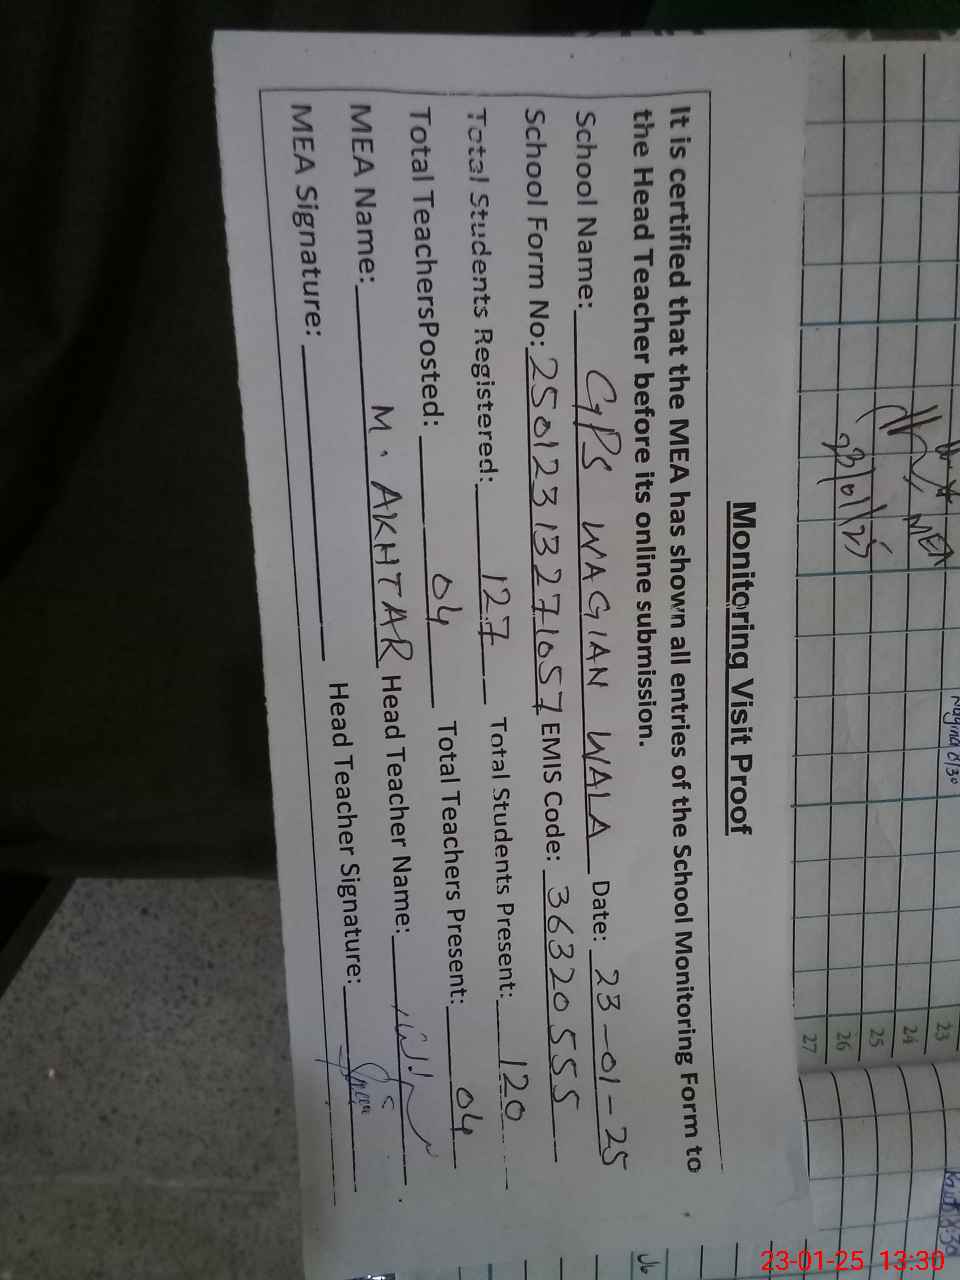 Monitoring Visit Proof
It is certified that the MEA has shown all entries of the School Monitoring Form to
the Head Teacher before its online submission.
School Name: GPS WAGIAN WALA Date: 23-01-25
School Form No: 25012313271057 EMIS Code: 36320555
Total Students Registered: 127 Total Students Present: 120
Total TeachersPosted: 04 Total Teachers Present: 04
MEA Name: M. AKHTAR Head Teacher Name:
MEA Signature: Head Teacher Signature:
MEA
23/01/25
23
24
25
26
27
23-01-25 13:30